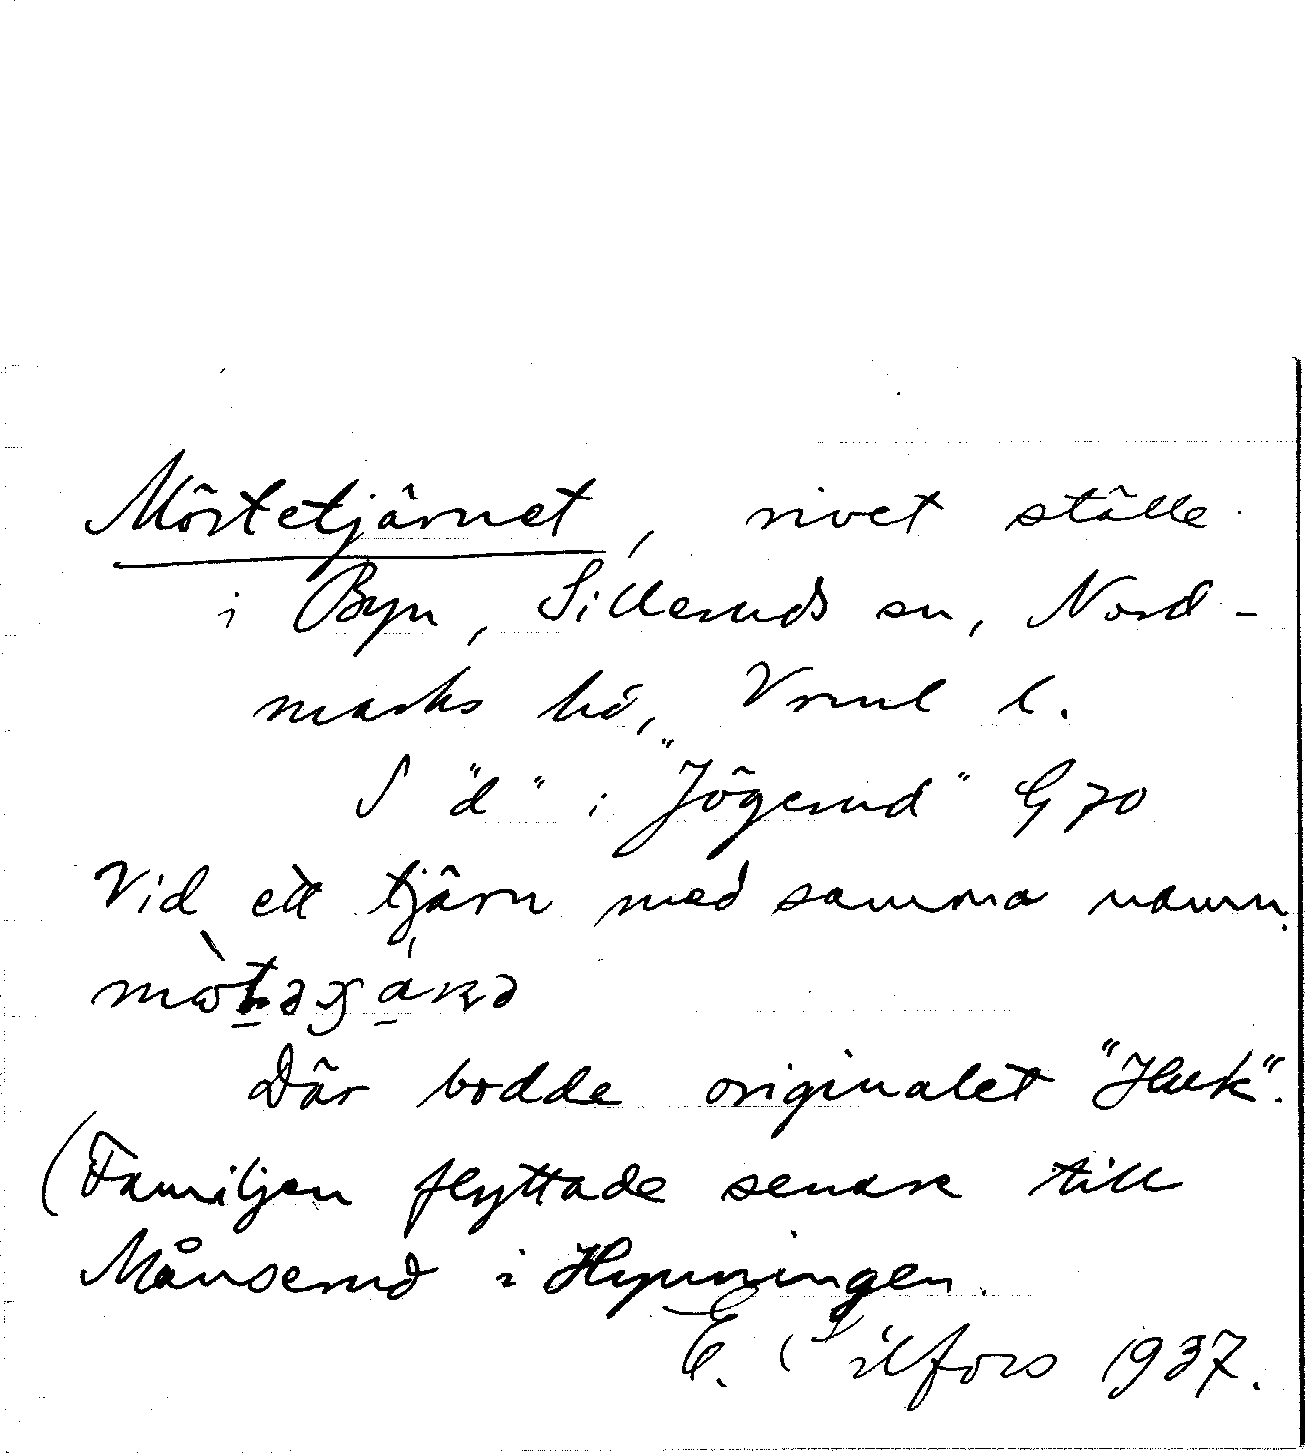 Mörtetjärnet, rivet ställe
i Byn, Silleruds sn, Nord-
marks hd, Vrml l.
S "d" i "Jögerud" G 70
Vid ett tjärn med samma namn.
Där bodde originalet "Huk".
(Familjen flyttade senare till
Månserud i Hynningen.
E. Silfors 1937.